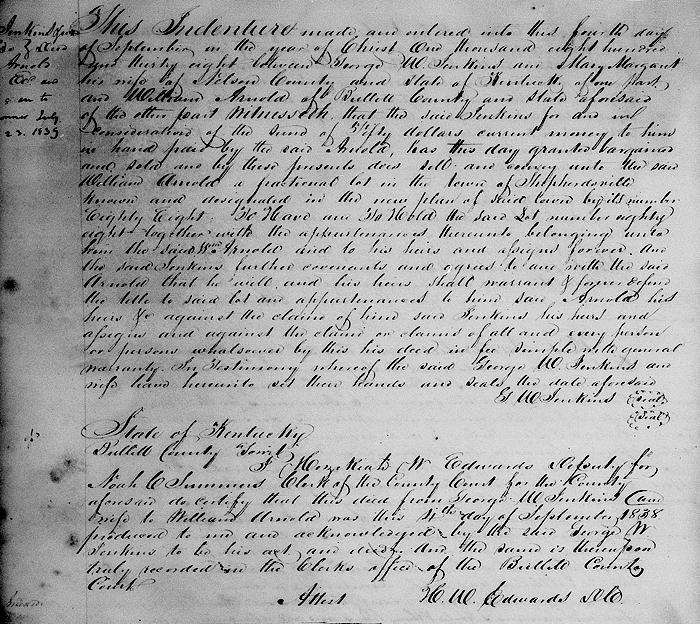 Jenkins Geo W
To } Deed
Arnold
Exd and
to
July
23. 1839
This Indenture made and entered into this fourth day
of September in the year of Christ One thousand eight hundred
and thirty eight between George W Jenkins and Mary Margaret
his wife of Nelson County and State of Kentucky of one part
and William Arnold of Bullitt County and State aforesaid
of the other part Witnesseth, that the said Jenkins for and in
consideration of the sum of fifty dollars current money to him
in hand paid by the said Arnold, has this day granted bargained
and sold and by these presents does sell and convey unto the said
William Arnold a fractional lot in the town of Shepherdsville
known and designated in the new plan of said town by its number
Eighty Eight. To Have and To Hold the said Lot number eighty
eight together with the appurtenances thereunto belonging unto
from the said Wm Arnold and to his heirs and assigns forever. And
the said Jenkins further covenants and agrees to and with the said
Arnold that he will and his heirs shall warrant & forever defend
the title to said lot and appurtenances to him said Arnold his
heirs &c against the claim of him said Jenkins his heirs and
assigns and against the claim or claims of all and every person
or persons whatsoever by this his deed in fee simple with general
warranty. In Testimony whereof the said George W. Jenkins and
wife have hereunto set their hands and seals the date aforesaid
G W Jenkins (Seal)
(Seal)
State of Kentucky
Bullitt County Towit
I Hezekiah W Edwards Deputy for
Noah C Summers Clerk of the County Court for the County
aforesaid do certify that this deed from George W Jenkins (and
wife to William Arnold was this 4th day of September 1838
produced to me and acknowledged by the said George W
Jenkins to be his act and deed. And the same is thereupon
truly recorded in the Clerks office of the Bullitt County
Court
Attest H. W. Edwards DC